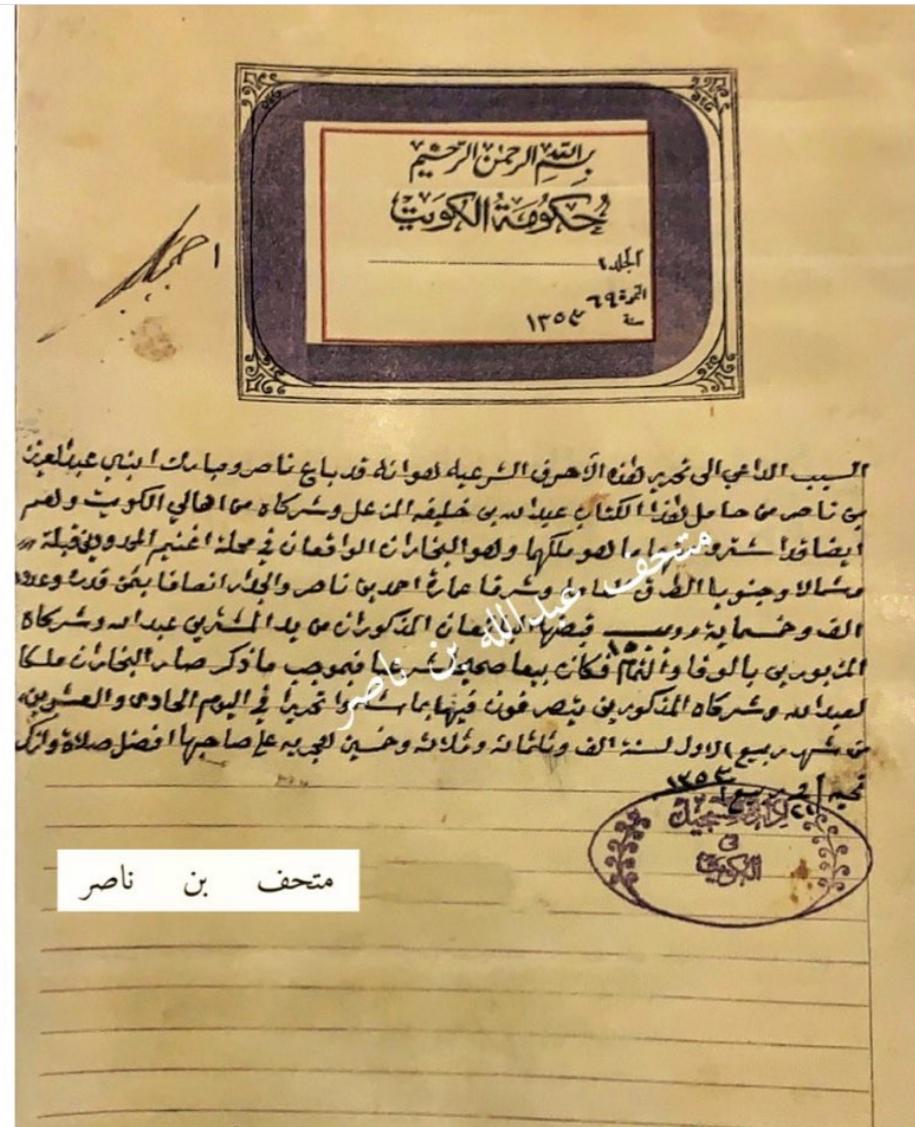 بسم الله الرحمن الرحيم
حكومة الكويت
الجلد ١
النمرة ٦٩
سنة ١٣٥٣
السبب الداعي الى تحرير هذه الأحرف الشرعية هو انه قد باع ناصر ومبارك ابني عبدالعزيز
بن ناصر من حامل هذا الكتاب عبدالله بن خليفه وشركاه من اهالي الكويت وهم
ايضا قد اشتروا منهما ما هو ملكهما وهو البخاران الواقعان في محلة اغنيم المحدودين قبلة
وشمالا وجنوبا الطرق وشرقا عمارة احمد بن ناصر والجدار انصافا بثمن قدره وعدده
الف وخمسماية روبيه قبضها البايعان المذكوران من يد المشتري عبدالله وشركاه
المزبورين بالوفا والتمام فكان بيعا صحيحا شرعيا فبموجب ما ذكر صار البخاران ملكا
لعبدالله وشركاه المذكورين يتصرفون فيهما بما شاءوا تحريرا في اليوم الحادي والعشرين
من شهر ربيع الاول لسنة الف وثلثمائة وثلاثة وخمسين هجريه على صاحبها افضل صلاة وازكى
تحيه ٢١ ربيع ١ ١٣٥٣
ادارة تسجيل
في
الكويت
متحف عبدالله بن ناصر
متحف بن ناصر